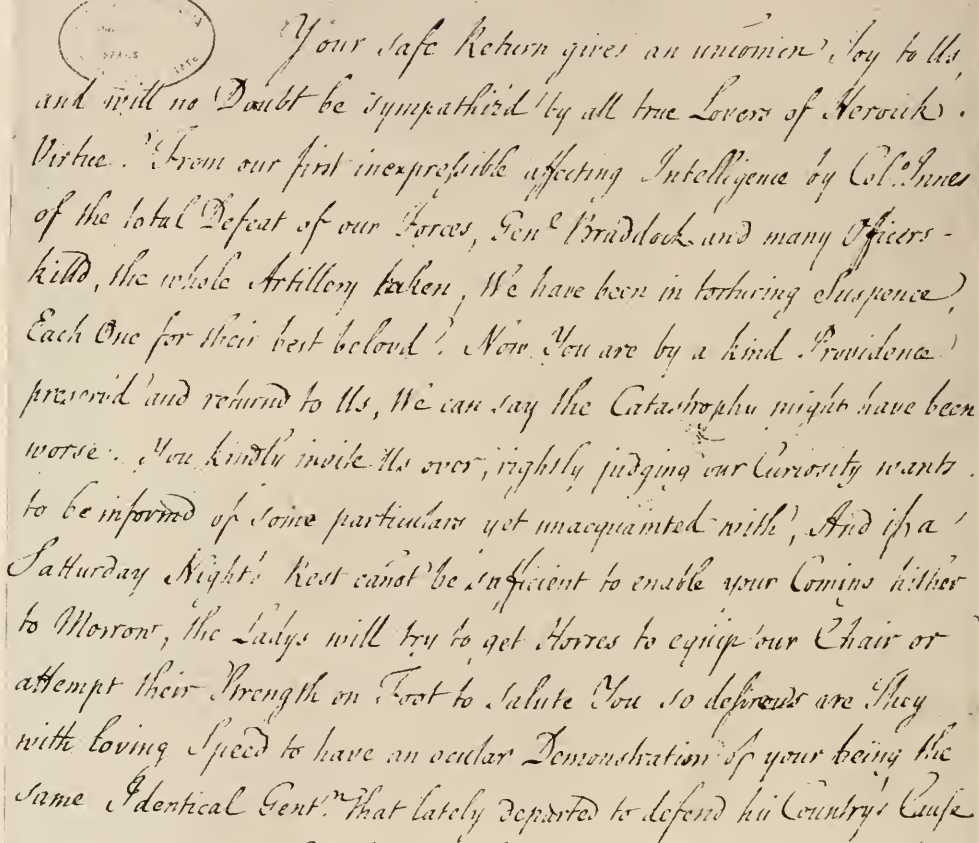 Your safe Return gives an uncomon Joy to Us,
and will no Doubt be sympathiz'd by all true Lovers of Heroick
Virtue. From our first inexpressible affecting Intelligence by Colo. Innes
of the total Defeat of our Forces, Genl. Braddock and many Officers
killd, the whole Artillery taken, We have been in torturing Suspence,
Each One for their best belovd. Now You are by a kind Providence
preservd and returnd to Us, We can say the Catastrophe might have been
worse. You kindly invite Us over, rightly judging our Curiosity wants
to be informd of some particulars yet unacquainted with, And if a
Satturday Night's Rest canot be sufficient to enable your Coming hither
to Morrow, the Ladys will try to get Horses to equip our Chair or
attempt their Strength on Foot to Salute You so desirous are They
with loving Speed to have an ocular Demonstration of your being the
same Identical Gentn. that lately departed to defend his Country's Cause